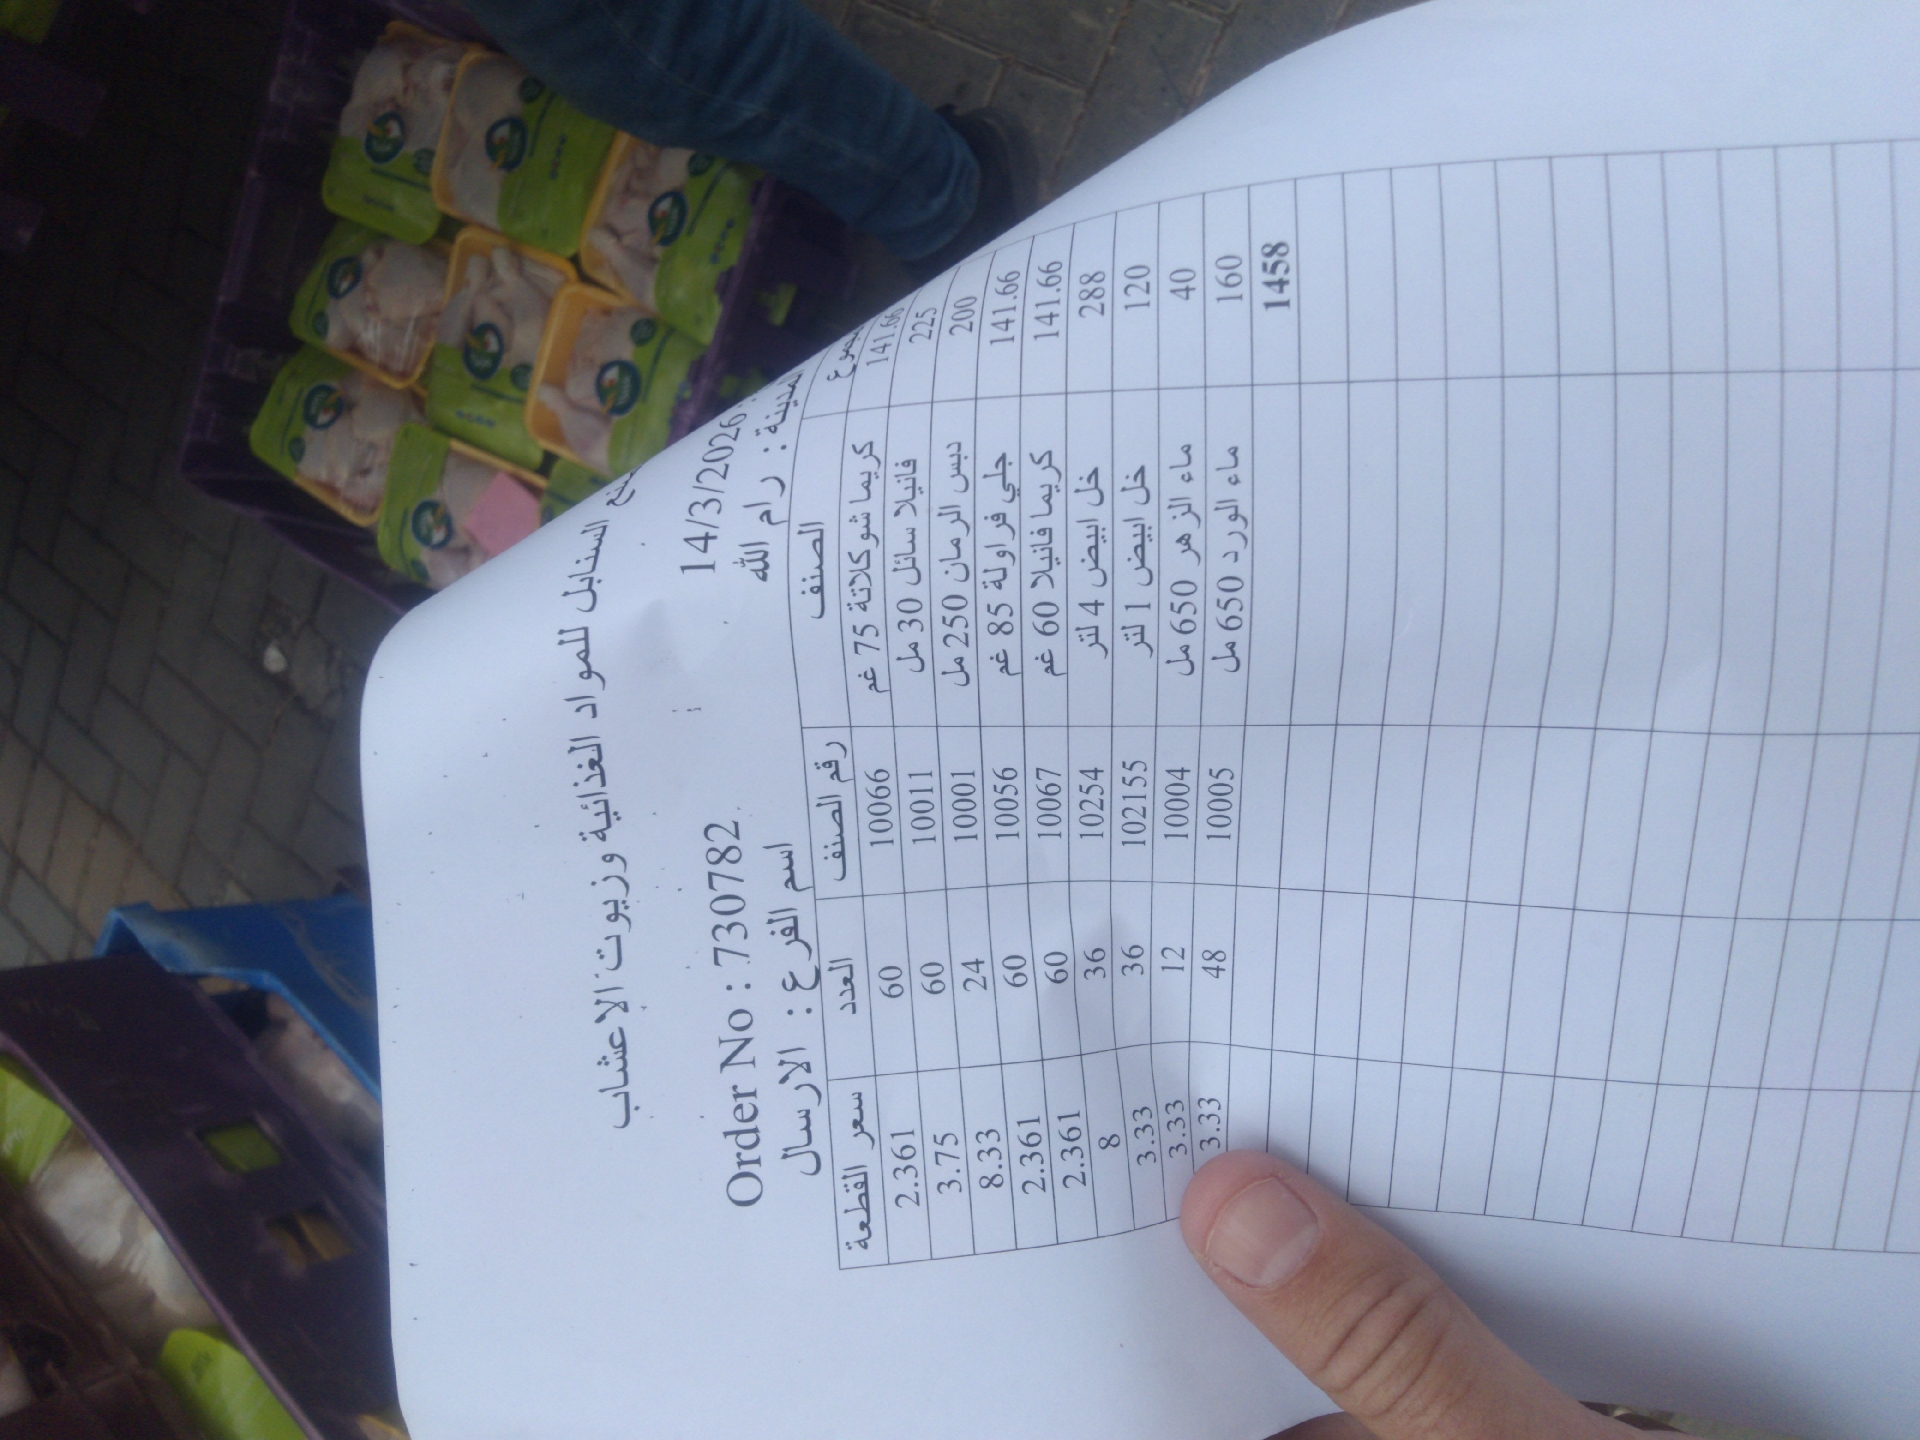 مصنع السنابل للمواد الغذائية وزيوت الاعشاب
Order No : 730782 14/3/2026
اسم الفرع : الارسال المدينة : رام الله
سعر القطعة العدد رقم الصنف الصنف المجموع
2.361 60 10066 كريما شوكلاتة 75 غم 141.66
3.75 60 10011 فانيلا سائل 30 مل 225
8.33 24 10001 دبس الرمان 250 مل 200
2.361 60 10056 جلي فراولة 85 غم 141.66
2.361 60 10067 كريما فانيلا 60 غم 141.66
8 36 10254 خل ابيض 4 لتر 288
3.33 36 102155 خل ابيض 1 لتر 120
3.33 12 10004 ماء الزهر 650 مل 40
3.33 48 10005 ماء الورد 650 مل 160
1458